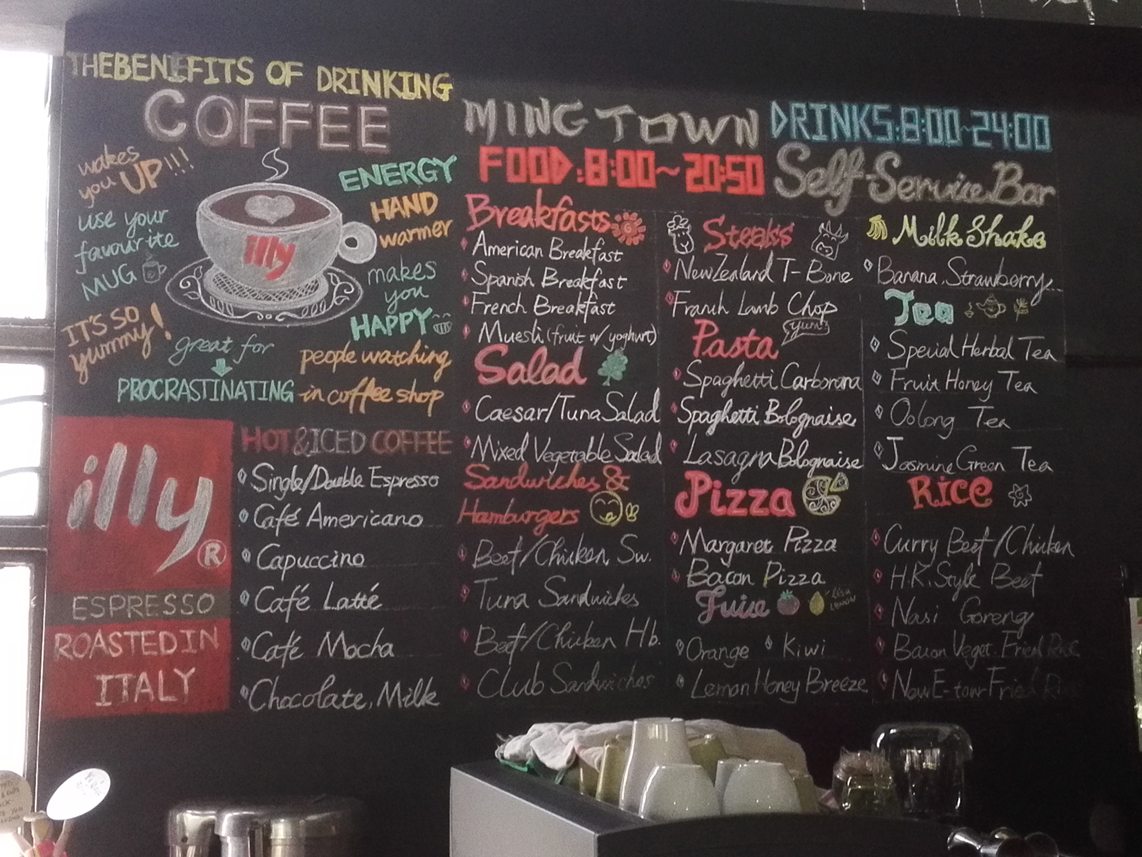 THE BENEFITS OF DRINKING
COFFEE
wakes
you UP!!!
use your
favourite
MUG
IT'S SO
yummy!
illy
ENERGY
HAND
warmer
makes
you
HAPPY
great for
PROCRASTINATING
people watching
in coffee shop
illy
®
ESPRESSO
ROASTED IN
ITALY
HOT & ICED COFFEE
Single/Double Espresso
Café Americano
Capuccino
Café Latté
Café Mocha
Chocolate, Milk
MING TOWN
FOOD:8:00~20:50
DRINKS:8:00~24:00
Self-Service Bar
Breakfasts
American Breakfast
Spanish Breakfast
French Breakfast
Muesli (fruit w/ yoghurt)
Salad
Caesar/Tuna Salad
Mixed Vegetable Salad
Sandwiches &
Hamburgers
Beef/Chicken Sw.
Tuna Sandwiches
Beef/Chicken Hb.
Club Sandwiches
Steaks
New Zealand T-Bone
Franch Lamb Chop
Yum!
Pasta
Spaghetti Carbonara
Spaghetti Bolognaise
Lasagna Bolognaise
Pizza
Margaret Pizza
Bacon Pizza
Juice
Orange Kiwi
Lemon Honey Breeze
Milk Shake
Banana. Strawberry.
Tea
Special Herbal Tea
Fruit Honey Tea
Oolong Tea
Jasmine Green Tea
Rice
Curry Beef/Chicken
H.K. Style Beef
Nasi Goreng
Bacon Veget. Fried Rice
Now E-tow Fried Rice